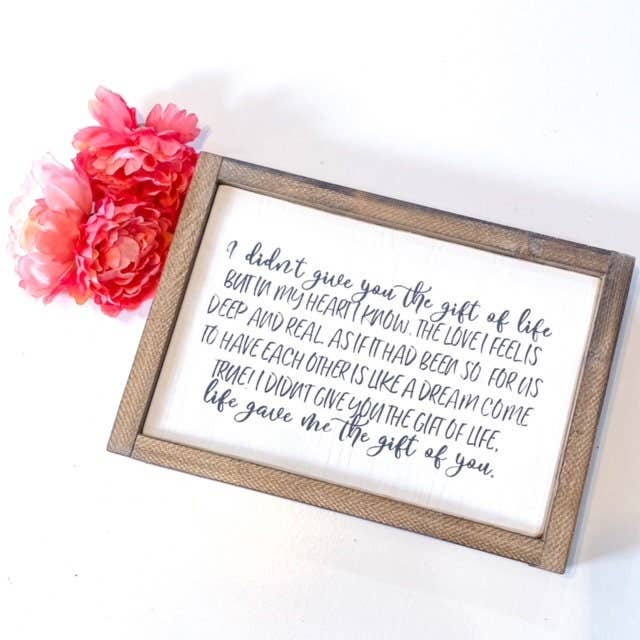 I didn't give you the gift of life
BUT IN MY HEART I KNOW. THE LOVE I FEEL IS
DEEP AND REAL AS IF IT HAD BEEN SO. FOR US
TO HAVE EACH OTHER IS LIKE A DREAM COME
TRUE! I DIDN'T GIVE YOU THE GIFT OF LIFE,
life gave me the gift of you.